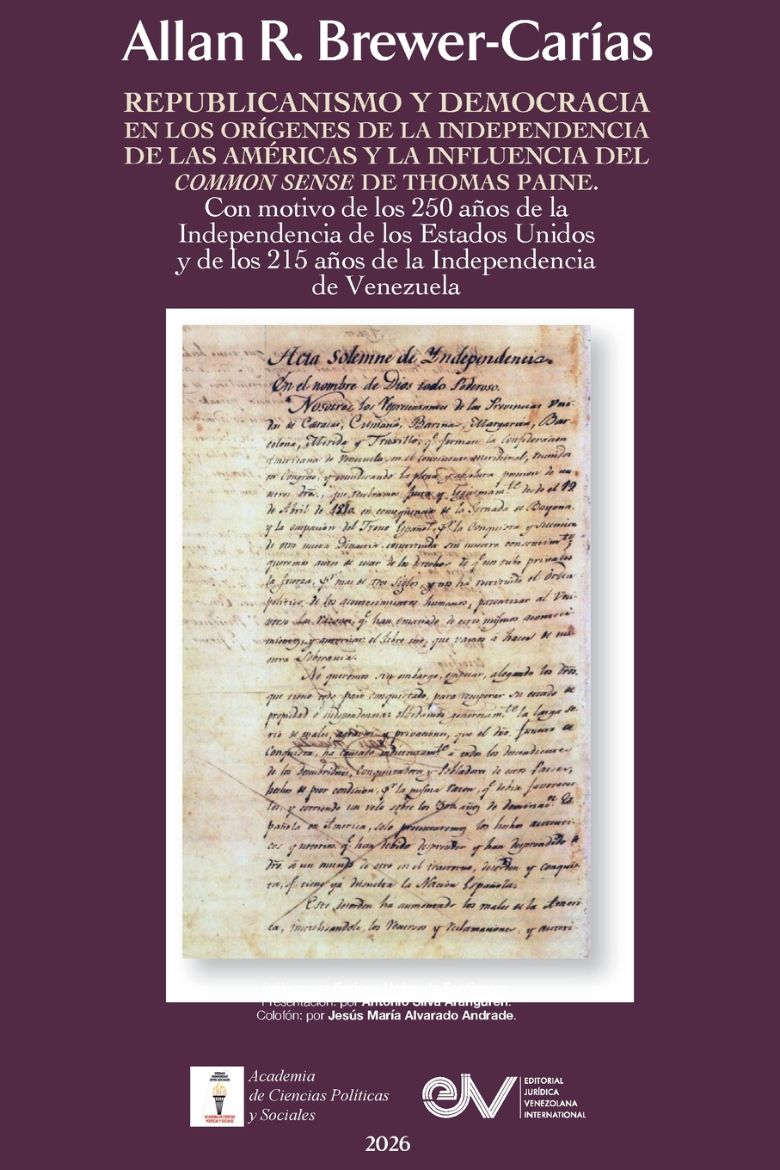 Allan R. Brewer-Carías
REPUBLICANISMO Y DEMOCRACIA
EN LOS ORÍGENES DE LA INDEPENDENCIA
DE LAS AMÉRICAS Y LA INFLUENCIA DEL
COMMON SENSE DE THOMAS PAINE.
Con motivo de los 250 años de la
Independencia de los Estados Unidos
y de los 215 años de la Independencia
de Venezuela
Acta solemne de Yndependencia.
En el nombre de Dios todo Poderoso.
Nosotros los Representantes de las Provincias Uni-
das de Caracas, Cumaná, Barinas, Margarita, Bar-
celona, Mérida y Truxillo, q.e forman la Confederacion
Americana de Venezuela, en el continente meridional, reunidos
en Congreso, y considerando la plena y absoluta posesion de nu-
de Abril de 1810 en conseqüencia de la Jornada de Bayona
y la ocupacion del Trono Español, la Conquista y sucesion
de otra nueva Dinastia
queremos antes de usar de los derechos
la fuerza, mas de tres siglos, y nos ha restituido el orden
politico de los acontecimientos humanos, patentizar al Uni-
verso las razones, q.e han emanado de estos mismos aconteci-
mientos, y autorizan el libre uso, que vamos á hacer de nu-
estra Soberania.
No queremos sin embargo, empezar, alegando los dros.
que tiene todo pais conquistado, para recuperar su estado de
propiedad é independencia: olvidamos generosam.te la larga se-
rie de males, agravios y privaciones, que el dro. funesto de
Conquista, ha causado indistintam.te á todos los descendientes
de los descubridores, Conquistadores y Pobladores de estos Paises,
hechos de peor condicion, p.r la misma razon, q.e debia favorecer-
los; y corriendo un velo sobre los 300 años de dominac.n Es-
pañola en America, solo presentaremos los hechos autenti-
cos y notorios, q.e han debido desprender y han desprendido de
dro. á un mundo de otro en el trastorno, desorden y conquis-
ta, q.e tiene ya disuelta la Nación Española.
Este desorden ha aumentado los males de la Ameri-
ca, inutilizandole los recursos y reclamaciones, y autori-
Presentación: por Antonio Silva Aranguren.
Colofón: por Jesús María Alvarado Andrade.
Academia
de Ciencias Políticas
y Sociales
EJV
EDITORIAL
JURÍDICA
VENEZOLANA
INTERNATIONAL
2026